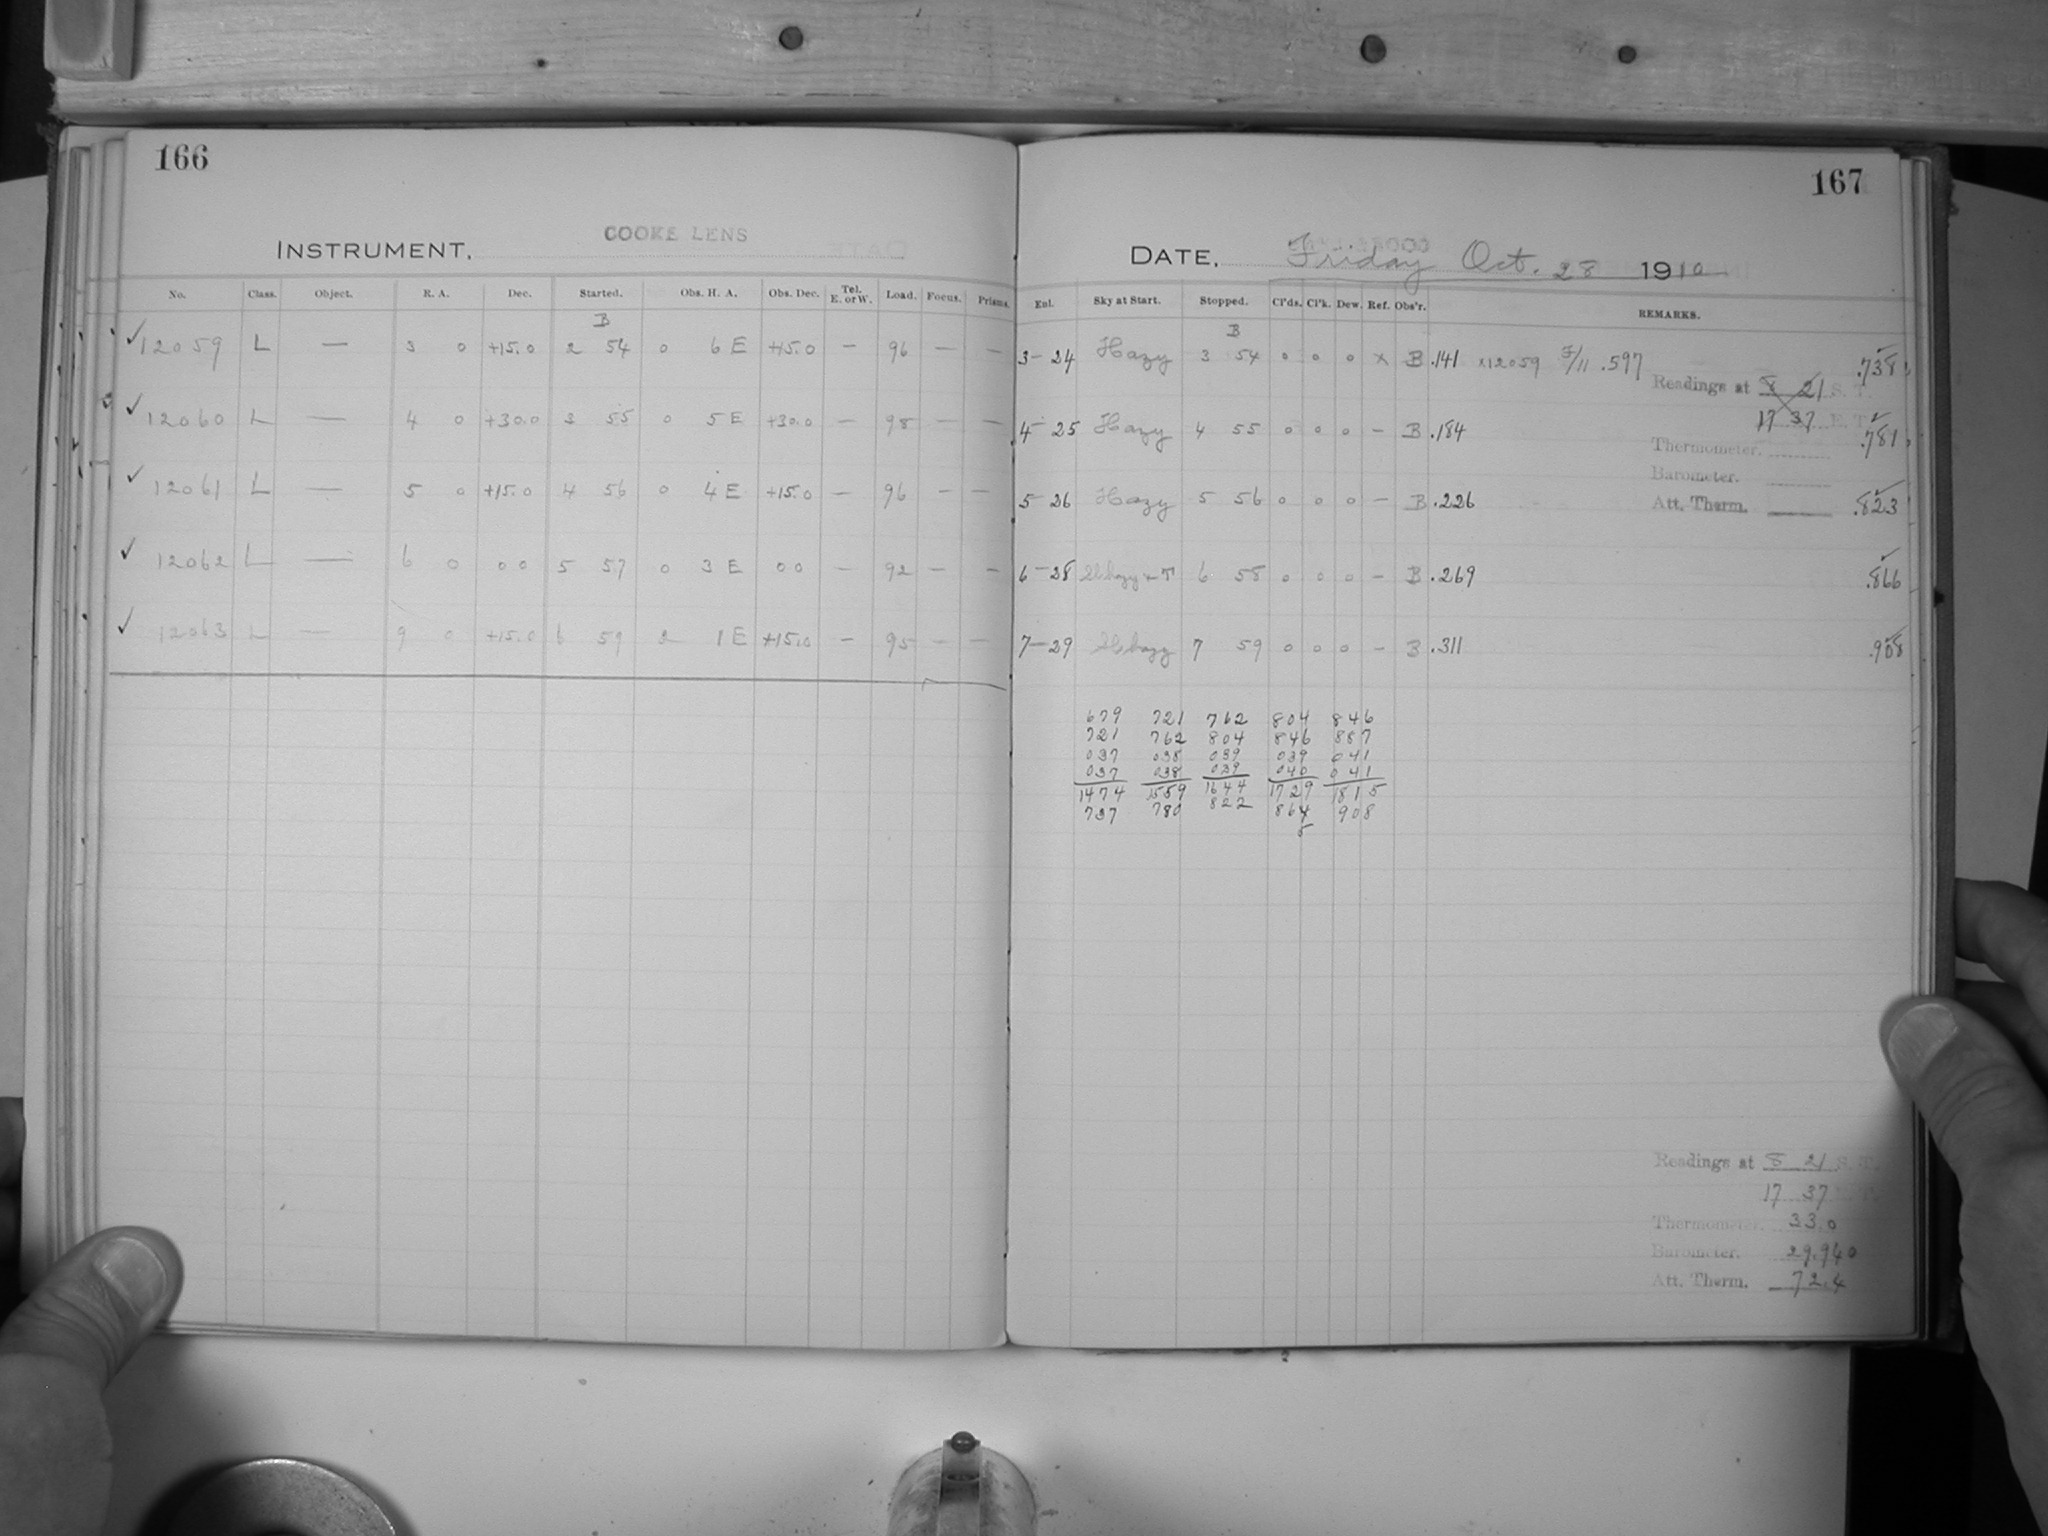 166
COOKE LENS
INSTRUMENT,
No. Class. Object. R. A. Dec. Started. Obs. H. A. Obs. Dec. Tel. E. or W. Load. Focus. Prisms.
B
✓12059 L — 3 0 +15.0 2 54 0 6 E +15.0 — 96 — —
✓12060 L — 4 0 +30.0 3 55 0 5 E +30.0 — 98 — —
✓12061 L — 5 0 +15.0 4 56 0 4 E +15.0 — 96 — —
✓12062 L — 6 0 0 0 5 57 0 3 E 0 0 — 92 — —
✓12063 L — 9 0 +15.0 6 59 2 1 E +15.0 — 95 — —
167
DATE, Friday Oct. 28 1910
Ent. Sky at Start. Stopped. Cl'ds. Cl'k. Dew. Ref. Obs'r. REMARKS.
B
3-24 Hazy 3 54 0 0 0 x B .141 x12059 F/11 .597 .738
Readings at 8 21 S. T.
17 37 E. T.
4-25 Hazy 4 55 0 0 0 — B .184 .781
Thermometer.
Barometer.
5-26 Hazy 5 56 0 0 0 — B .226 .823
Att. Therm.
6-28 6 58 0 0 0 — B .269 .866
7-29 7 59 0 0 0 — B .311 .908
679 721 762 804 846
721 762 804 846 887
037 038 039 039 041
037 038 039 040 041
1474 1559 1644 1729 1815
737 780 822 864 908
5
Readings at 8 21 S. T.
17 37
Thermometer. 33.0
Barometer. 29.940
Att. Therm. 72.4